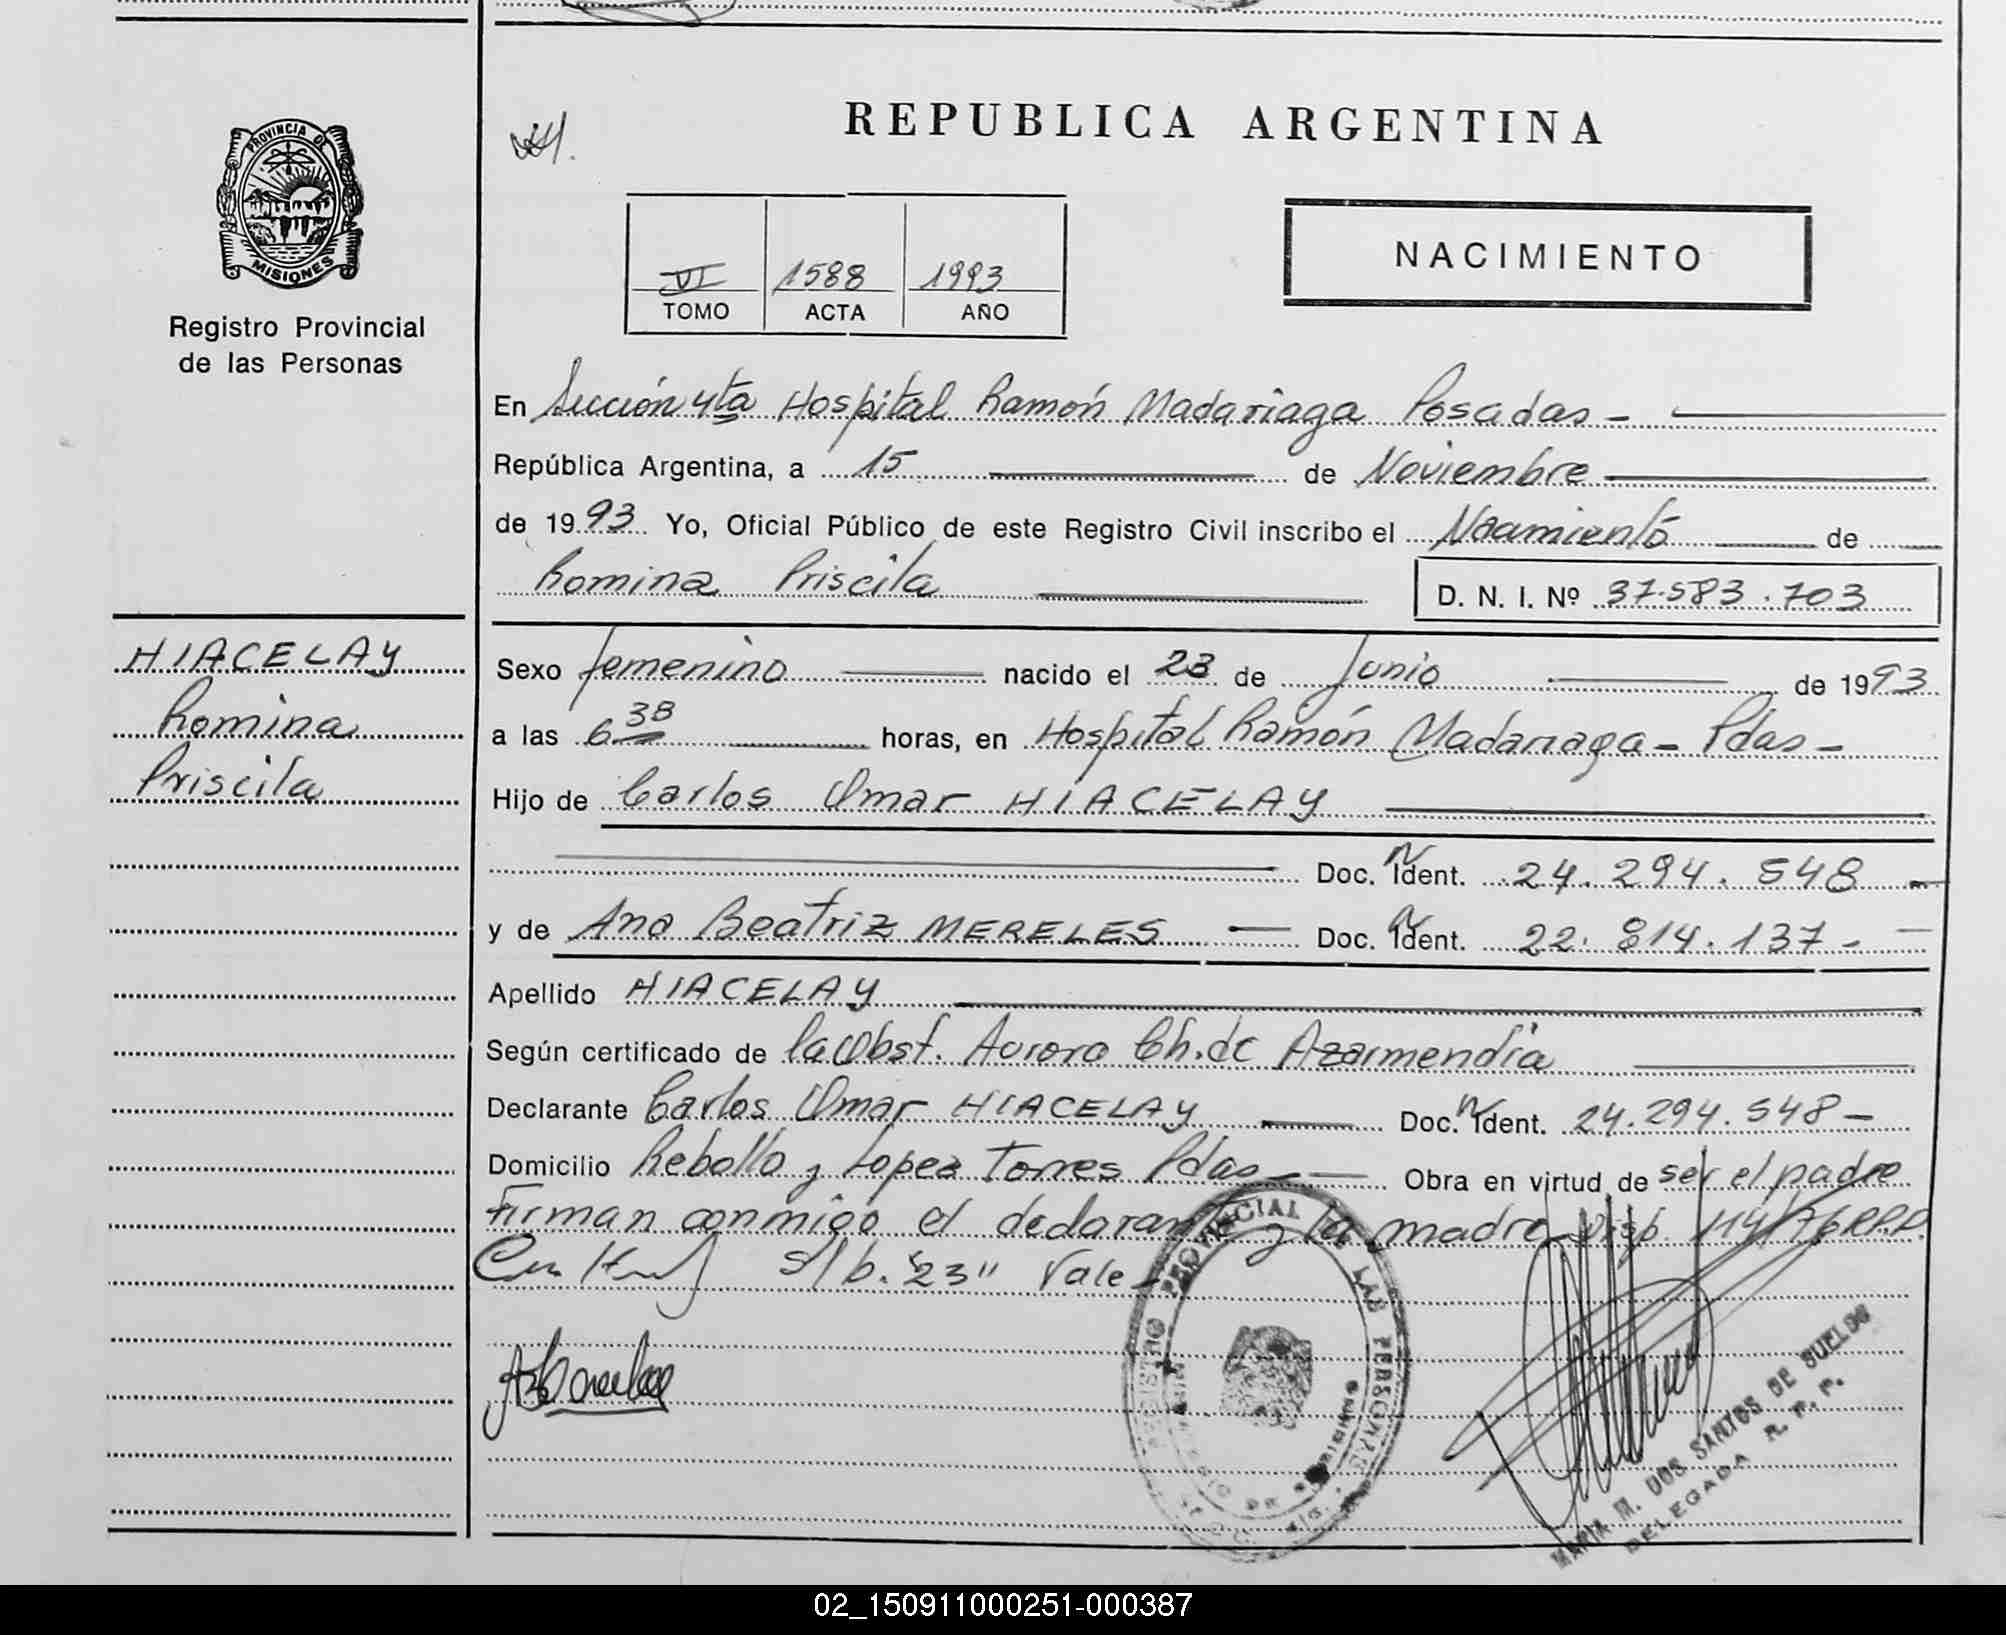 REPUBLICA ARGENTINA
PROVINCIA DE
MISIONES
Registro Provincial
de las Personas
VI 1588 1993
TOMO ACTA AÑO
NACIMIENTO
En Sección 4ta Hospital Ramón Madariaga Posadas -
República Argentina, a 15 de Noviembre
de 1993 Yo, Oficial Público de este Registro Civil inscribo el Nacimiento de
Romina Priscila D. N. I. Nº 37.583.703
HIACELAY
Romina
Priscila
Sexo femenino nacido el 23 de Junio de 1993
a las 6 38 horas, en Hospital Ramón Madariaga - Pdas -
Hijo de Carlos Omar HIACELAY
Doc. N Ident. 24.294.548
y de Ana Beatriz MERELES Doc. N Ident. 22.814.137-
Apellido HIACELAY
Según certificado de la Obst. Aurora Ch. de Azarmendia
Declarante Carlos Omar HIACELAY Doc. N Ident. 24.294.548-
Domicilio Rebollo y Lopez Torres Pdas Obra en virtud de ser el padre
Firman conmigo el declarante y la madre Disp. 114/76 R.P.P.
S/b. "23" Vale-
REGISTRO PROVINCIAL DE LAS PERSONAS
MARIA M. DOS SANTOS DE SUELDO
DELEGADA R. P. P.
02_150911000251-000387